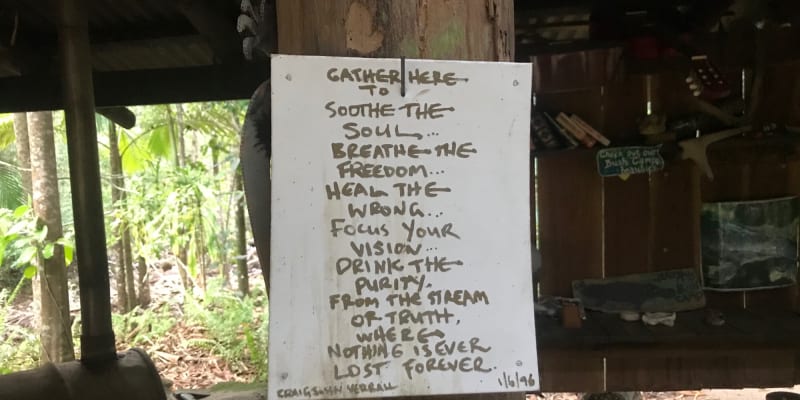 GATHER HERE
TO
SOOTHE THE
SOUL...
BREATHE THE
FREEDOM...
HEAL THE
WRONG...
FOCUS YOUR
VISION...
DRINK THE
PURITY.
FROM THE STREAM
OF TRUTH,
WHERE
NOTHING IS EVER
LOST FOREVER.
CRAIG VERRALL 1/6/96
Check out our
Bush Camp